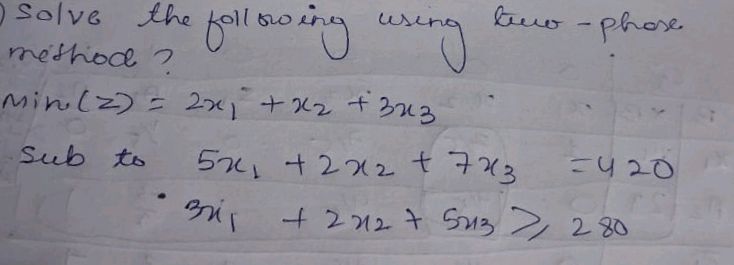 ) Solve the following using two-phase
method?
Min(z) = 2x₁ + x₂ + 3x₃
Sub to 5x₁ + 2x₂ + 7x₃ = 420
3x₁ + 2x₂ + 5x₃ ≥ 280